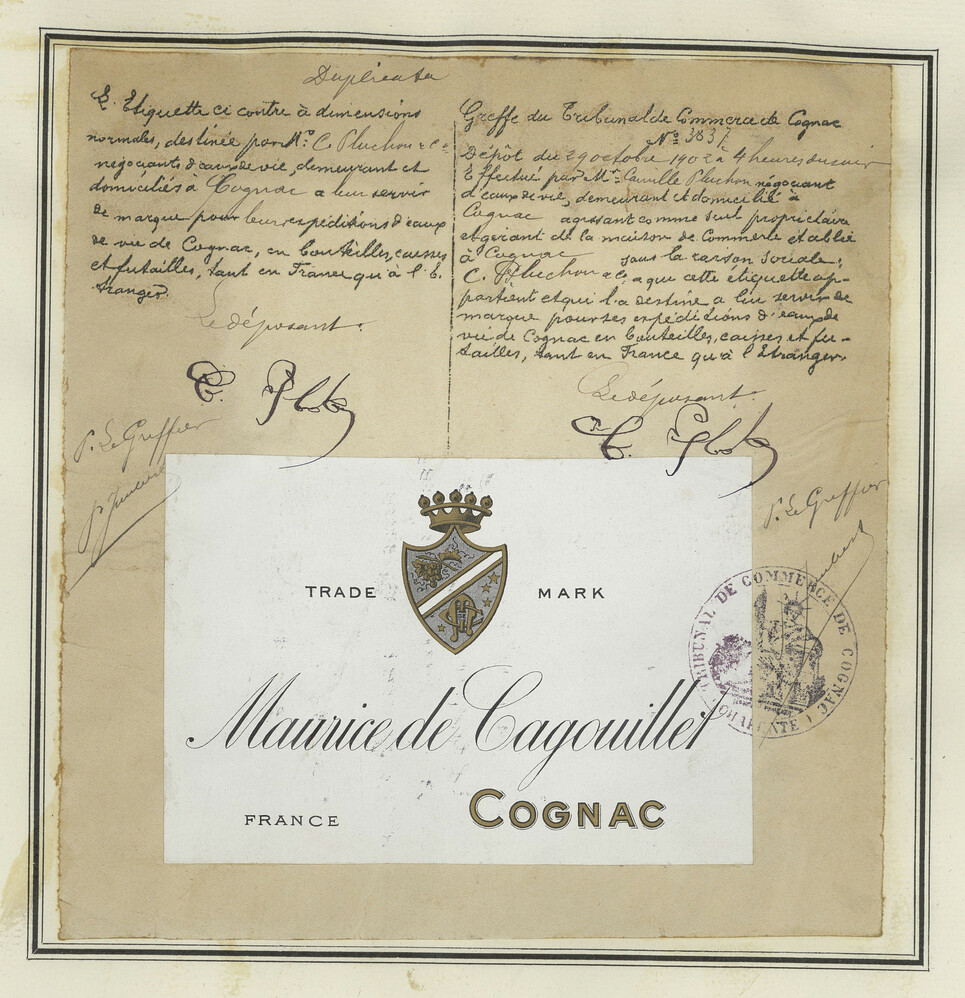 Duplicata
L'Etiquette ci contre à dimensions
normales, destinée par Mr. C. Pluchon & Cie
négociants d'eaux de vie, demeurant et
domiciliés à Cognac a leur servir
de marque pour leurs expéditions d'eaux
de vie de Cognac, en bouteilles, caisses
et futailles, tant en France qu'à l'E
tranger.
Le déposant.
P. Le Greffier
Greffe du Tribunal de Commerce de Cognac
No 3837
Dépôt du 29 octobre 1902 à 4 heures du soir
Effectué par Mr. Camille Pluchon négociant
d'eaux de vie, demeurant et domicilié à
Cognac agissant comme seul propriétaire
et gérant de la maison de Commerce établie
à Cognac sous la raison sociale:
C. Pluchon & Cie a que cette étiquette ap-
partient et qui l'a destine a lui servir de
marque pour ses expéditions d'eaux de
vie de Cognac en bouteilles, caisses et fu-
tailles, tant en France qu'à l'Etranger.
Le déposant.
P. Le Greffier
TRADE MARK
Maurice de Cagouillet
FRANCE
COGNAC
TRIBUNAL DE COMMERCE DE COGNAC
(CHARENTE)